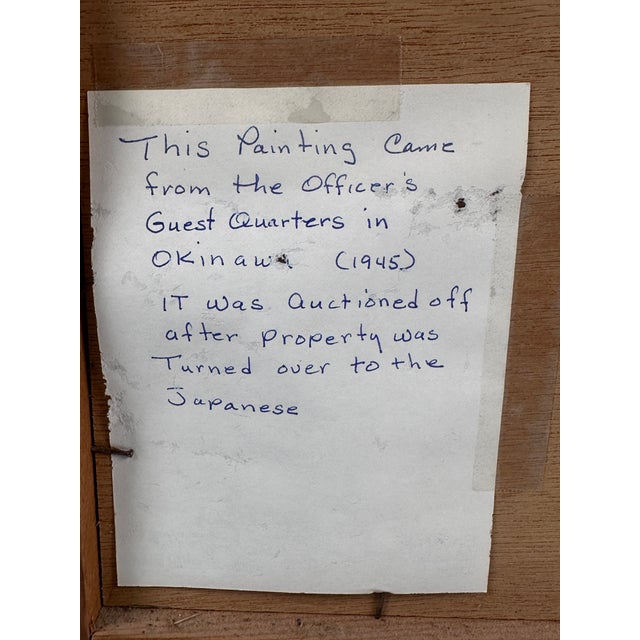 This Painting Came
from the Officer's
Guest Quarters in
Okinawa (1945)
IT was auctioned off
after property was
Turned over to the
Japanese